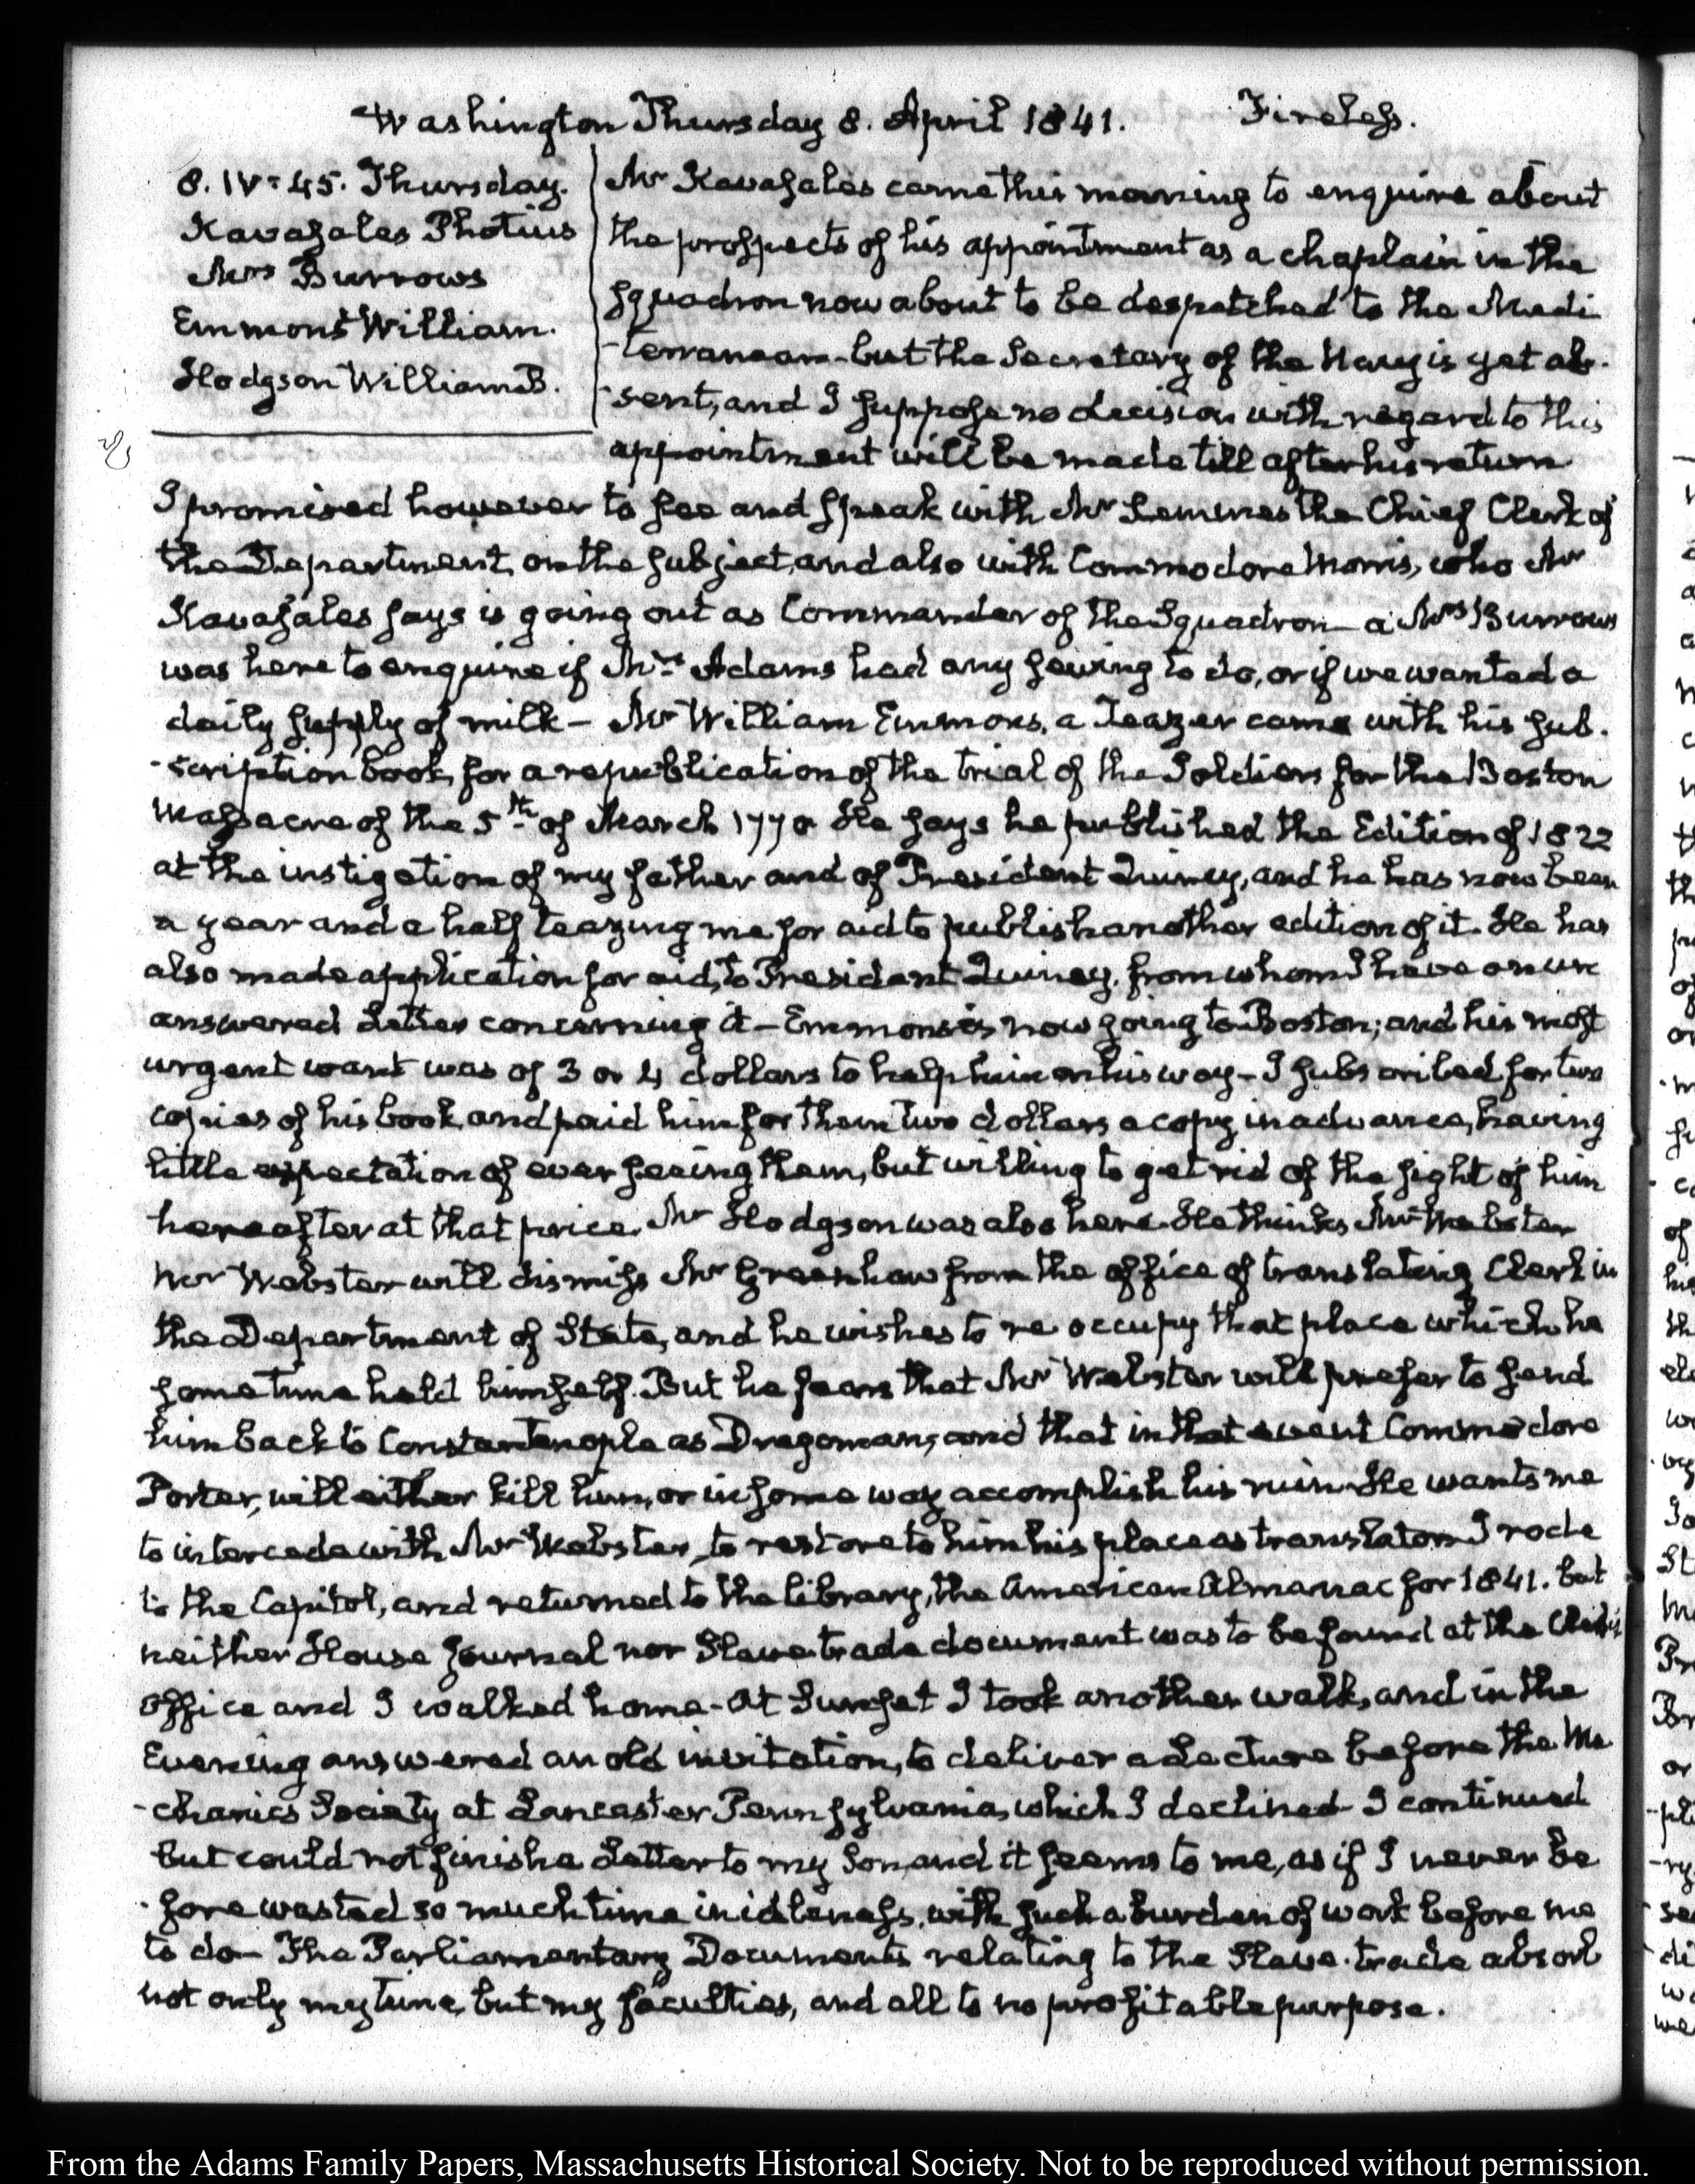 Washington Thursday 8. April 1841. Fireless.
8. IV:45. Thursday.
Kavasales Photius
Mrs Burrows
Emmons William.
Hodgson William B.
Mr Kavasales came this morning to enquire about
the prospects of his appointment as a chaplain in the
squadron now about to be despatched to the Medi
-terranean - but the Secretary of the Navy is yet ab-
-sent, and I suppose no decision with regard to this
appointment will be made till after his return
I promised however to see and speak with Mr Simmes the Chief Clerk of
the Department, on the subject, and also with Commodore Morris, who Mr
Kavasales says is going out as Commander of the Squadron - a Mrs Burrows
was here to enquire if Mrs Adams had any sewing to do, or if we wanted a
daily supply of milk - Mr William Emmons, a Teazer came with his sub-
-scription book, for a republication of the trial of the Soldiers for the Boston
Massacre of the 5th of March 1770 He says he published the Edition of 1822
at the instigation of my father and of President Quincy, and he has now been
a year and a half teazing me for aid to publish another edition of it. He has
also made application for aid, to President Quincy, from whom I have an un
answered Letter concerning it - Emmons is now going to Boston; and his most
urgent want was of 3 or 4 dollars to help him on his way - I subscribed for two
copies of his book, and paid him for them two dollars a copy in advance, having
little expectation of ever seeing them, but willing to get rid of the sight of him
hereafter at that price. Mr Hodgson was also here. He thinks Mr Webster
Mr Webster will dismiss Mr Greenhow from the office of translating Clerk in
the Department of State, and he wishes to re occupy that place which he
sometime held himself. But he fears that Mr Webster will prefer to send
him back to Constantinople as Dragoman, and that in that event Commodore
Porter, will either kill him, or in some way accomplish his ruin. He wants me
to intercede with Mr Webster, to restore to him his place as translator I rode
to the Capitol, and returned to the library, the American Almanac for 1841. but
neither House Journal nor Slave trade document was to be found at the Clerk's
office and I walked home - At Sunset I took another walk, and in the
Evening answered an old invitation, to deliver a Lecture before the Me
-chanics Society at Lancaster Pennsylvania, which I declined - I continued
but could not finish a Letter to my Son, and it seems to me, as if I never be
-fore wasted so much time in idleness, with such a burden of work before me
to do - The Parliamentary Documents relating to the Slave-trade absorb
not only my time, but my faculties, and all to no profitable purpose.
From the Adams Family Papers, Massachusetts Historical Society. Not to be reproduced without permission.